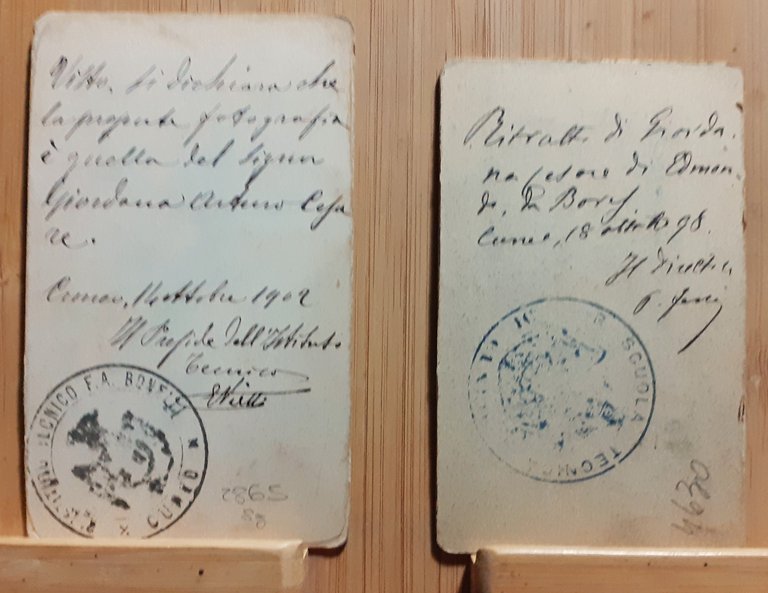 Visto, si dichiara che
la presente fotografia
è quella del Signor
Giordana Arturo Cesa
re.
Cuneo, 11 ottobre 1902
Il Preside dell'Istituto
Tecnico
ISTITUTO TECNICO F.A. BONELLI
CUNEO
Ritratto di Giorda-
na Cesare di Edmon-
do, da Boves
Cuneo, 18 ottobre 98.
Il Direttore
SCUOLA
TECNICA
4630